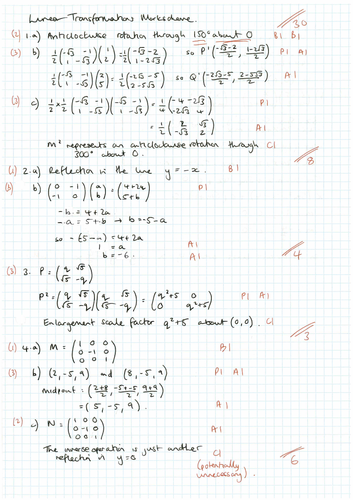 Linear Transformations Markscheme
30
(2) 1.a) Anticlockwise rotation through 150° about O B1 B1
(3) b) 1/2 (-√3 -1 / 1 -√3)(1 / 2) = 1/2 (-√3-2 / 1-2√3) so P'((-√3-2)/2, (1-2√3)/2) P1 A1
1/2 (-√3 -1 / 1 -√3)(2 / 5) = 1/2 (-2√3-5 / 2-5√3) so Q'((-2√3-5)/2, (2-5√3)/2) A1
(3) c) 1/2 × 1/2 (-√3 -1 / 1 -√3)(-√3 -1 / 1 -√3) = 1/4 P1
= 1/2 A1
M² represents an anticlockwise rotation through 300° about O. C1
8
(1) 2.a) Reflection in the line y = -x. B1
(3) b) (0 -1 / -1 0)(a / b) = (4+2a / 5+b) P1
-b = 4+2a
-a = 5+b → b = -5-a
so -(-5-a) = 4+2a
1 = a A1
b = -6. A1
4
(3) 3. P = (q √5 / √5 -q)
P² = (q √5 / √5 -q)(q √5 / √5 -q) = (q²+5 0 / 0 q²+5) P1 A1
Enlargement scale factor q²+5 about (0,0). C1
3
(1) 4.a) M = (1 0 0 / 0 -1 0 / 0 0 1) B1
(3) b) (2,-5,9) and (8,-5,9) P1 A1
midpoint = ((2+8)/2, (-5+-5)/2, (9+9)/2)
= (5,-5,9). A1
(2) c) N = (1 0 0 / 0 -1 0 / 0 0 1) A1
The inverse operation is just another
reflection in y=0 C1
(potentially
unnecessary)
6